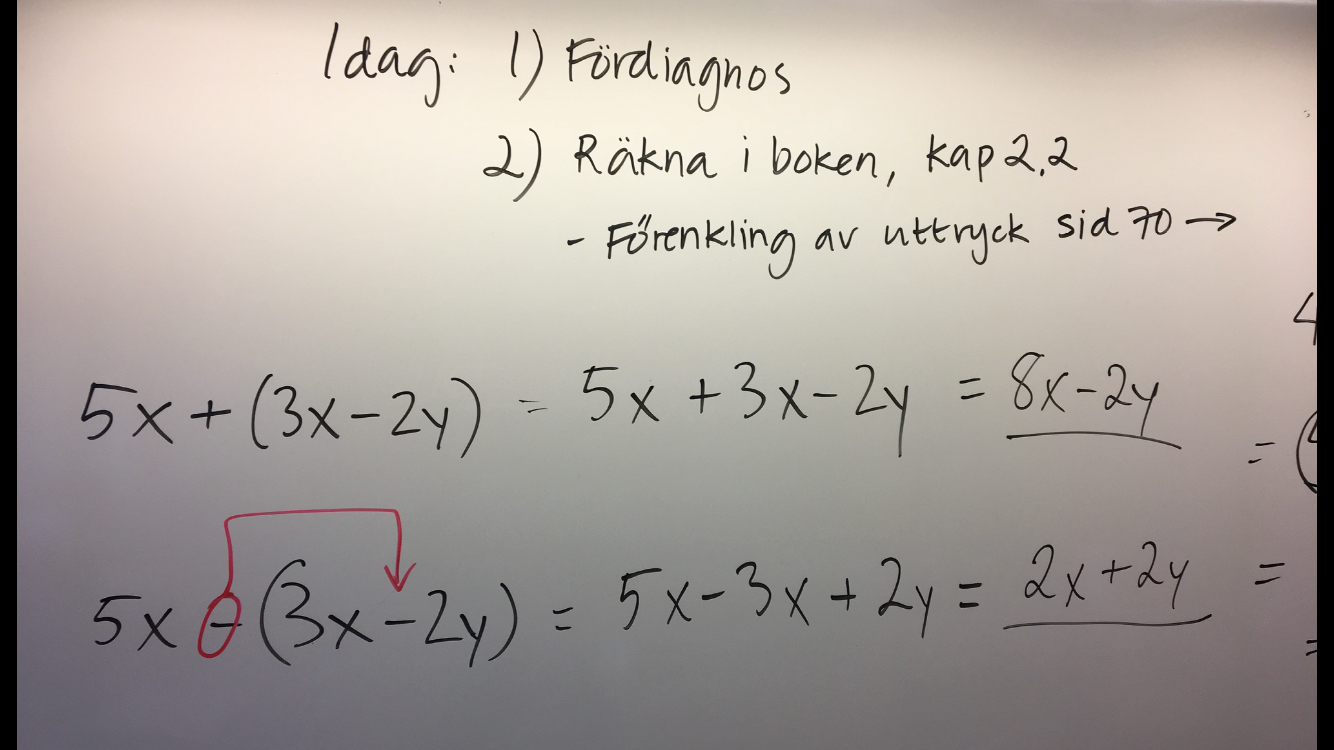 Idag: 1) Fördiagnos
2) Räkna i boken, kap 2.2
- Förenkling av uttryck sid 70 →
5x + (3x - 2y) = 5x + 3x - 2y = 8x - 2y
5x - (3x - 2y) = 5x - 3x + 2y = 2x + 2y =